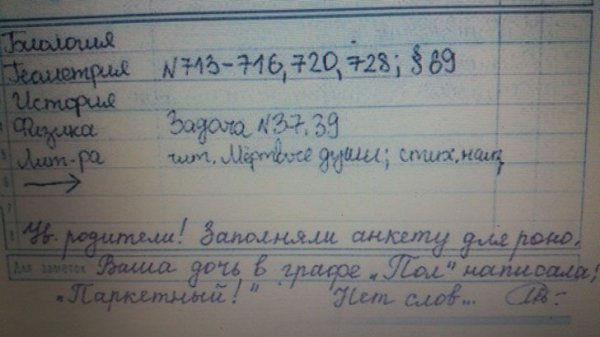 Биология
Геометрия N713-716, 720, 728; § 69
История
Физика Задача N37.39
Лит-ра чит. Мёртвые души; стих. наиз
6 →
7
8 Ув. родители! Заполняли анкету для роно.
Для заметок Ваша дочь в графе „Пол" написала;
„Паркетный!" Нет слов...